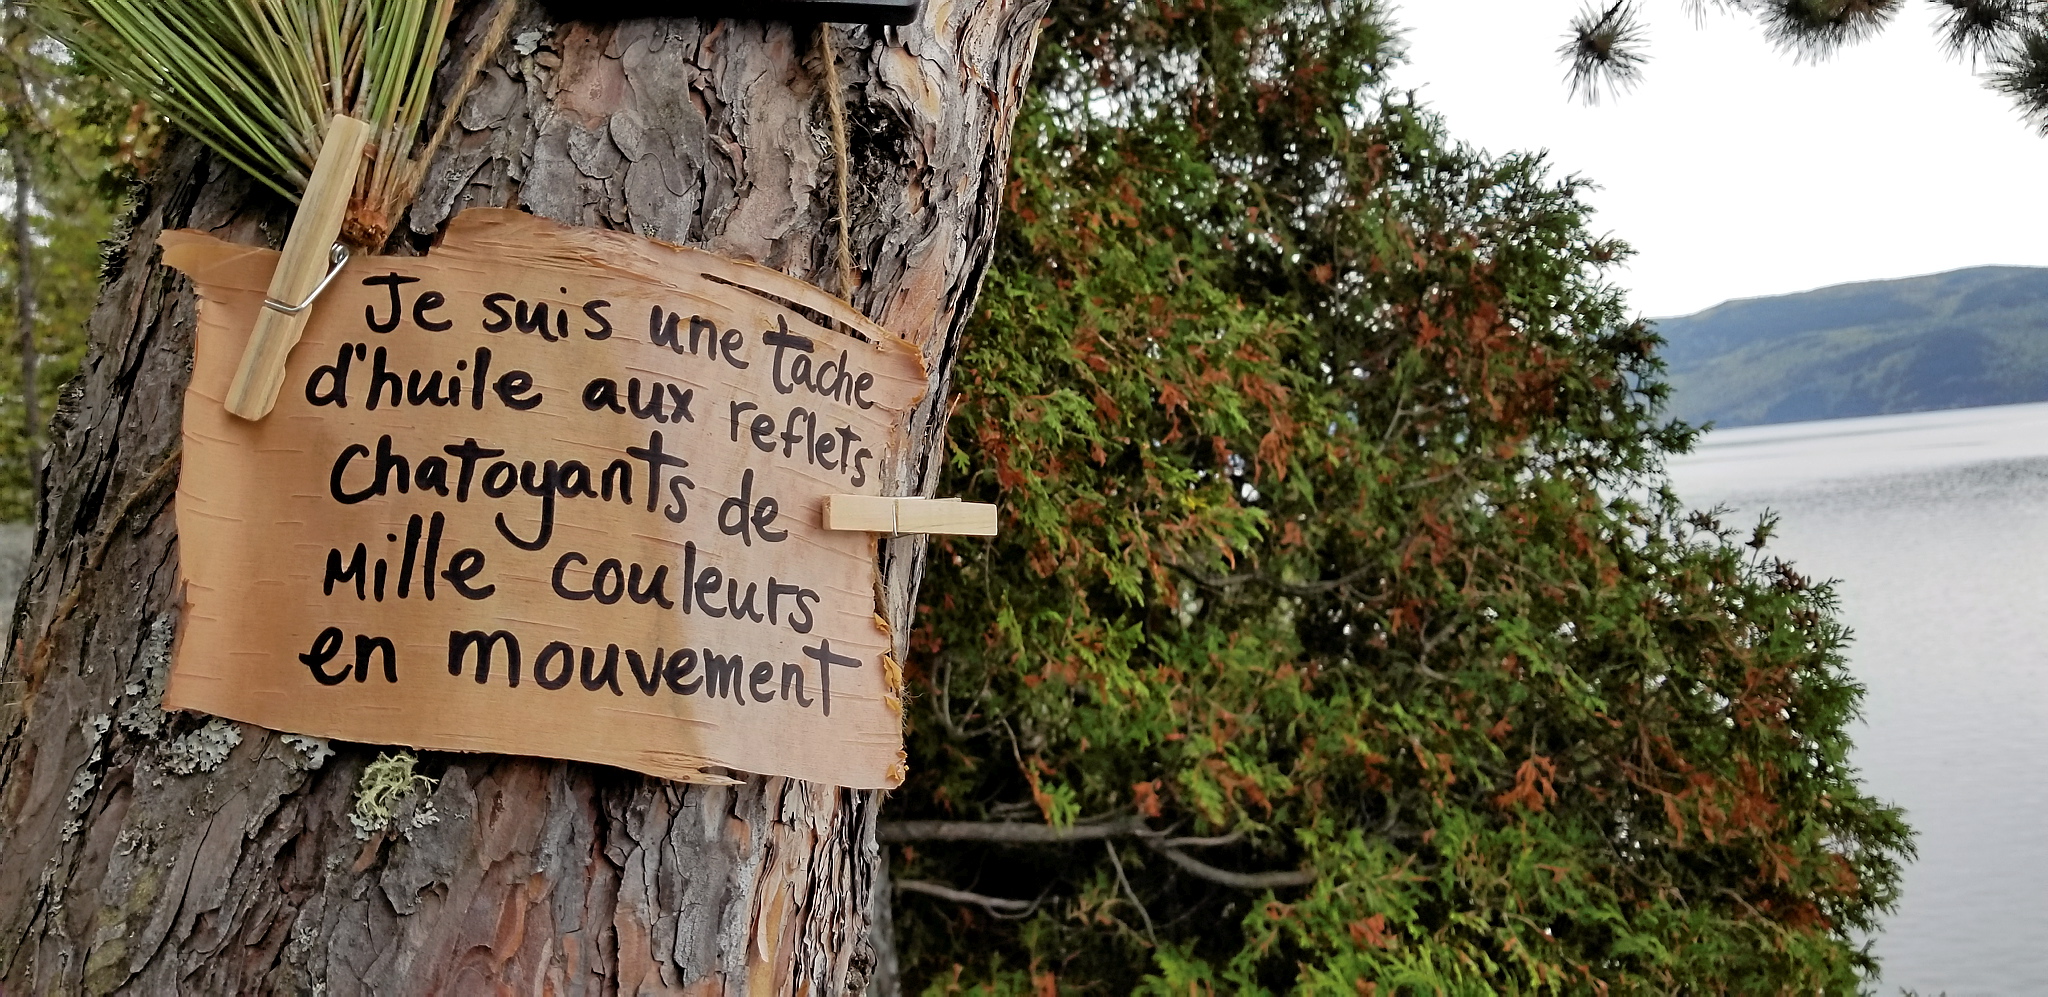 Je suis une tache
d'huile aux reflets
chatoyants de
Mille couleurs
en mouvement